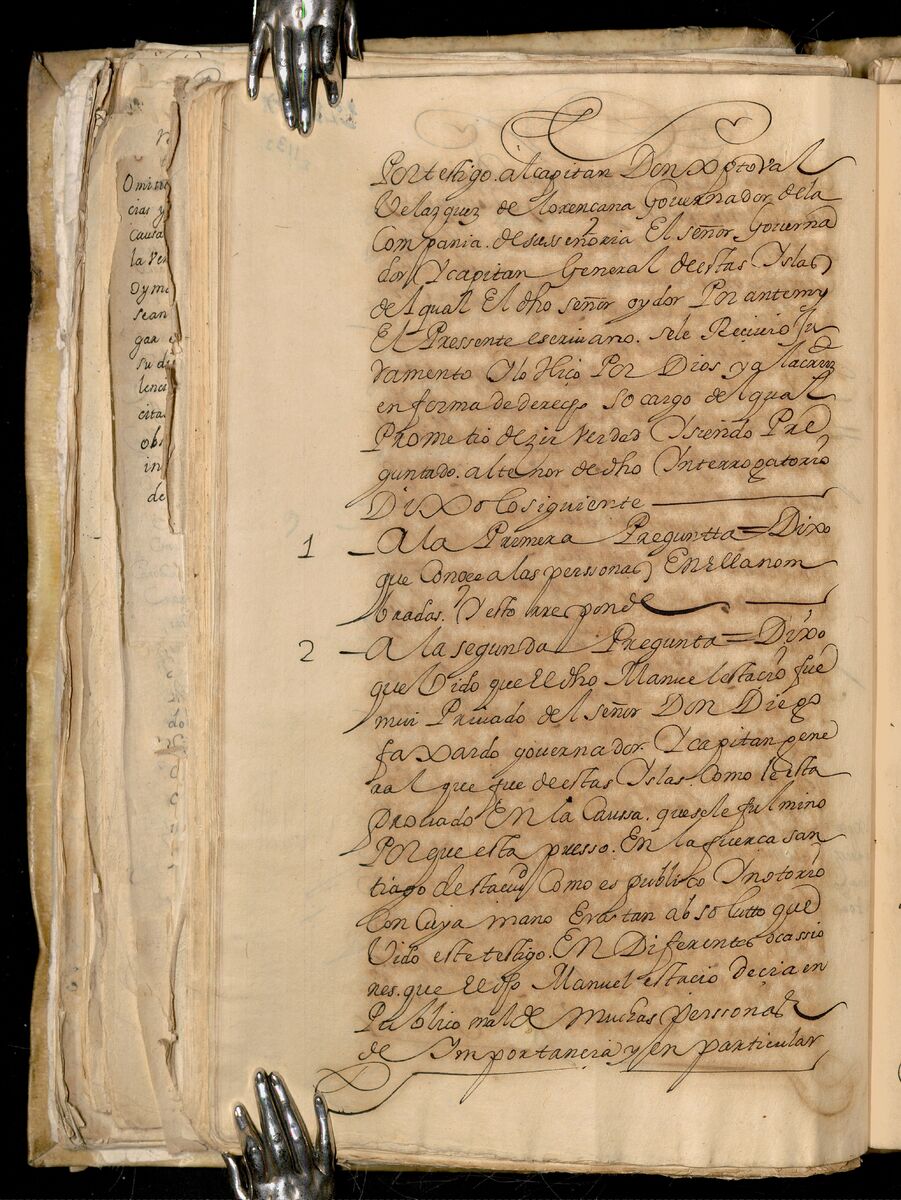 Por testigo. al capitan Don Xptoval
Velazquez de lorencana Governador de la
Compania. de su sseñoria El señor Governa
dor Y capitan General de estas Yslas
del qual El dho señor oydor Por ante my
El Pressente escrivano. sele Recivio Ju
ramento Y lo Hiço Por Dios y a la cruz
en forma de derecho so cargo del qual
Prometio dezir verdad Y siendo Pre
guntado. al thenor de dho Ynterrogatorio
Dixo lo siguiente
1 A la Primera Preguntta = Dixo
que Conoce a las perssonas En ella nom
bradas. Y esto rresponde
2 A la segunda Pregunta = Dixo
que Vido que El dho Manuel estacio fue
mui Privado del señor Don Diego
faxardo governador. Y capitan gene
ral que fue de estas Yslas. Como le esta
provado En la Caussa. que se le fulmino
Por que esta presso. En la fuerça san
tiago de esta ciud Como es publico Y notorio
Con cuya mano Era tan absolutto que
Vido este testigo. En Diferentes ocassio
nes. que El dho Manuel estacio decia en
Publico mal de muchas perssonas
de Ymportancia y en particular
Omitie
cias y
causa
la ver
oyma
sean
gar e
su di
lenci
cita
obs
in
de